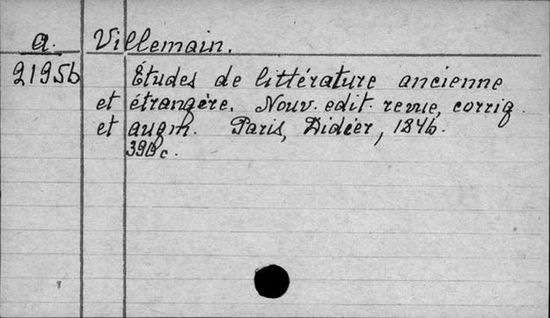 a. Villemain.
21956 Études de littérature ancienne
et étrangère. Nouv. edit. revue, corrig.
et augm. Paris, Didéer, 1846.
390 c.